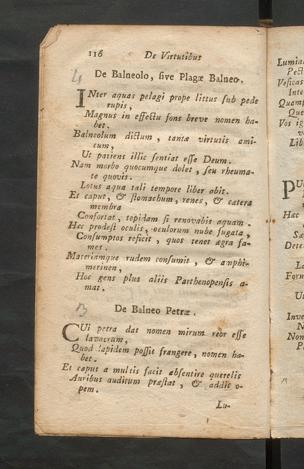 116 De Virtutibus
4
De Balneolo, sive Plagæ Balneo.
INter aquas pelagi prope littus sub pede
rupis,
Magnus in effectu fons breve nomen ha-
bet.
Balneolum dictum, tantæ virtutis ami-
cum,
Ut patiens illic sentiat esse Deum.
Nam morbo quocumque dolet, seu rheuma-
te quovis.
Lotus aqua tali tempore liber abit.
Et caput, & stomachum, renes, & cætera
membra
Confortat, tepidam si renovabis aquam.
Hæc prodest oculis, oculorum nube fugata,
Consumptos reficit, quos tenet ægra fa-
mes.
Materiamque rudem consumit, &
Hoc genus plus aliis Parthenopensis a-
mat.
De Balneo Petræ.
CUi petra dat nomen mirum reor esse
lavacrum,
Quod lapidem possit frangere, nomen ha-
bet.
Et caput a multis facit absentire querelis
Auribus auditum præstat, & addit o-
pem.
Lu-
Lumina
Pect
Vesicas
Inte
Quamp
Que
Vos ig
Lib
PU
Hac
Sæ
Dete
Le
Form
Ut
Inve
Ne
Non
Po